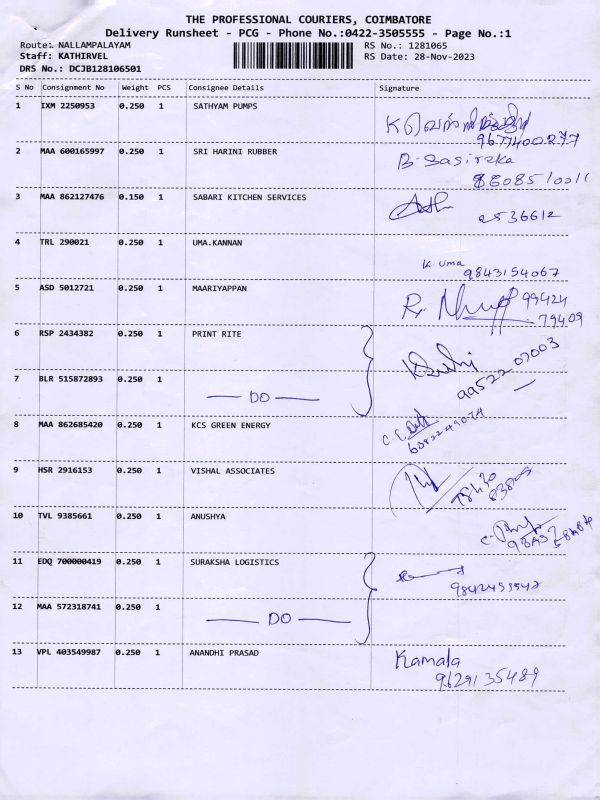 THE PROFESSIONAL COURIERS, COIMBATORE
Delivery Runsheet - PCG - Phone No.:0422-3505555 - Page No.:1
Route: NALLAMPALAYAM
RS No.: 1281065
Staff: KATHIRVEL
RS Date: 28-Nov-2023
DRS No.: DCJB128106501
S No Consignment No Weight PCS Consignee Details Signature
1 IXM 2250953 0.250 1 SATHYAM PUMPS
9677400277
2 MAA 600165997 0.250 1 SRI HARINI RUBBER B. Sasireka
8608510011
3 MAA 862127476 0.150 1 SABARI KITCHEN SERVICES
2536612
4 TRL 290021 0.250 1 UMA.KANNAN
K. Uma
9843154067
5 ASD 5012721 0.250 1 MAARIYAPPAN
99424
79409
6 RSP 2434382 0.250 1 PRINT RITE
99522 07003
7 BLR 515872893 0.250 1
DO
8 MAA 862685420 0.250 1 KCS GREEN ENERGY
9 HSR 2916153 0.250 1 VISHAL ASSOCIATES
10 TVL 9385661 0.250 1 ANUSHYA
11 EDQ 700000419 0.250 1 SURAKSHA LOGISTICS
12 MAA 572318741 0.250 1
DO
13 VPL 403549987 0.250 1 ANANDHI PRASAD
Kamala
9629135489